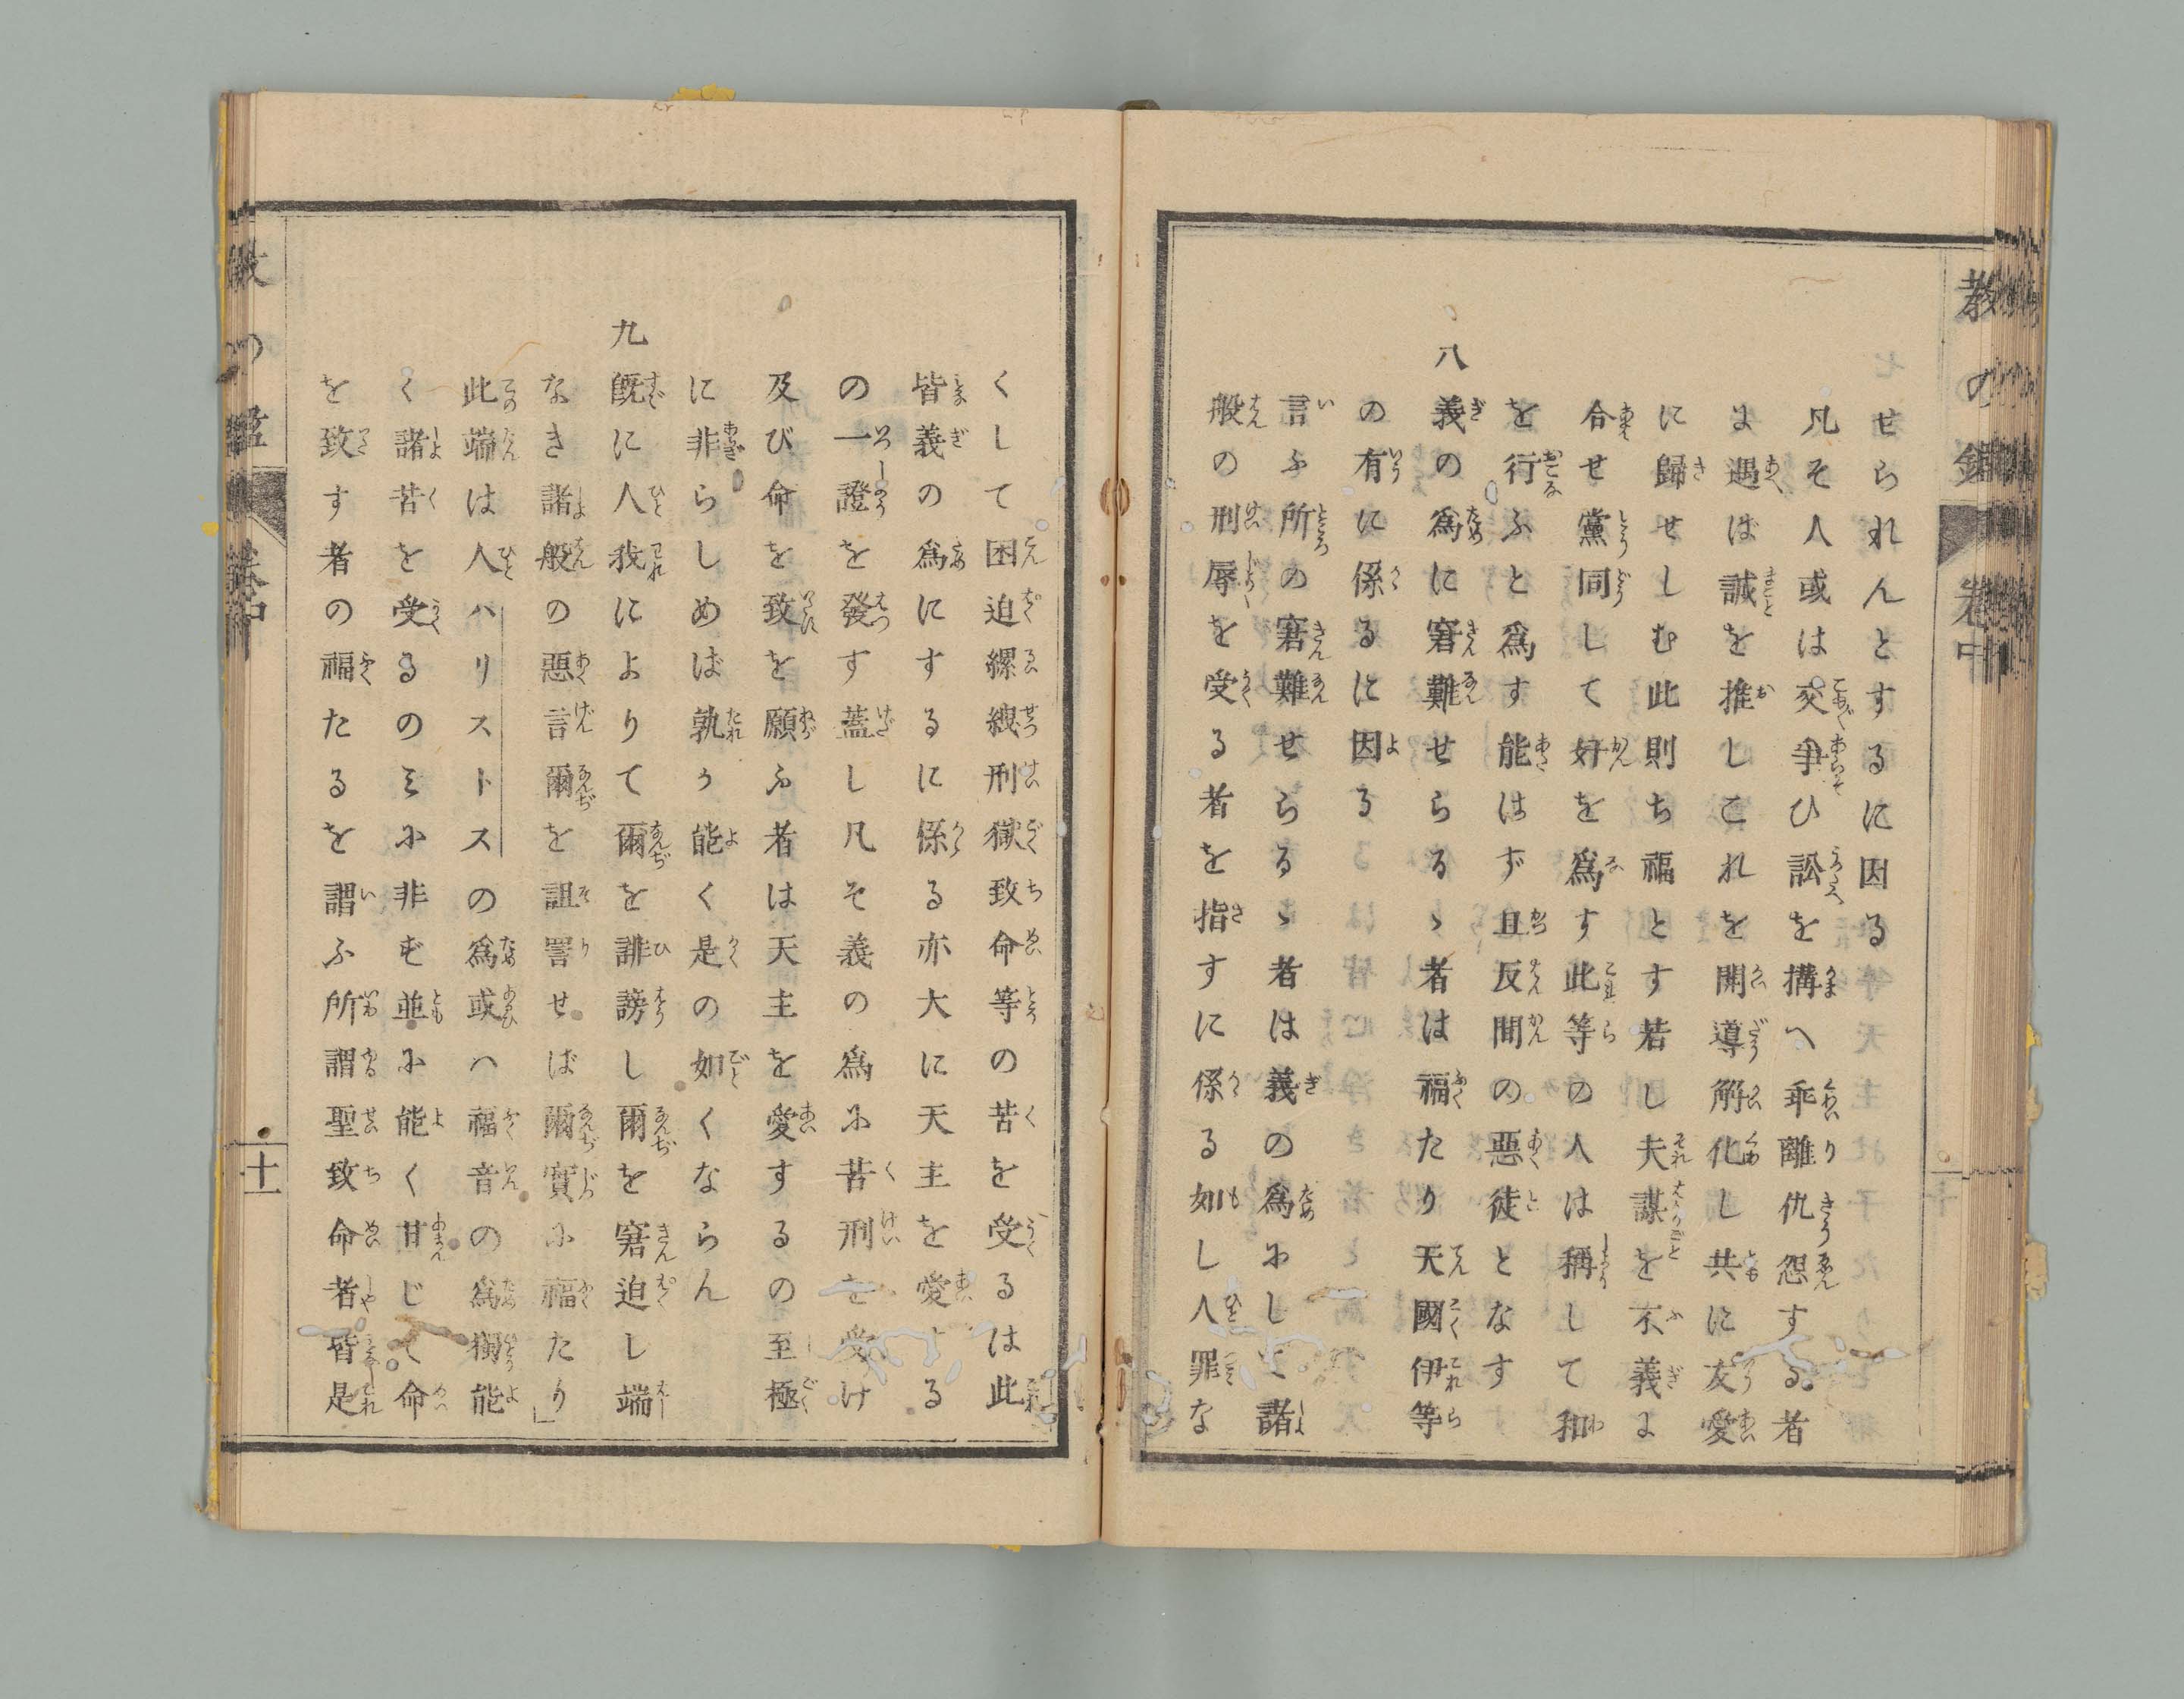 教の鑑 卷中
せられんとするに因る
凡そ人或は交爭ひ訟を構へ乖離仇怨する者
よ遇ば誠を推しこれを開導解化し共に友愛
に歸せしむ此則ち福とす若し夫謀を不義よ
合せ黨同して好を爲す此等の人は稱して和
を行ふと爲す能はず且反間の惡徒となす
八
義の爲に窘難せらるゝ者は福たり天國伊等
の有に係るに因る
言ふ所の窘難せらるゝ者は義の爲にして諸
般の刑辱を受る者を指すに係る如し人罪な
くして困迫縲絏刑獄致命等の苦を受るは此
皆義の爲にするに係る亦大に天主を愛する
の一證を發す蓋し凡そ義の爲に苦刑を受け
及び命を致を願ふ者は天主を愛するの至極
に非らしめば孰か能く是の如くならん
九
既に人我によりて爾を誹謗し爾を窘迫し端
なき諸般の惡言爾を詛詈せば爾實に福たり」
此端は人ハリストスの爲或ハ福音の爲獨能
く諸苦を受るのミに非ず並に能く甘じて命
を致す者の福たるを謂ふ所謂聖致命者皆是
教の鑑 卷中
十一